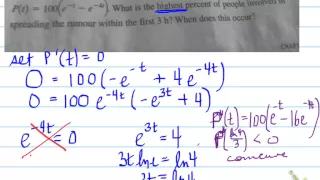 P(t) = 100(e^{-t} - e^{-4t}). What is the highest percent of people involved in
spreading the rumour within the first 3 h? When does this occur?
set P'(t) = 0
0 = 100(-e^{-t} + 4e^{-4t})
0 = 100 e^{-4t}(-e^{3t} + 4)
e^{-4t} = 0
e^{3t} = 4
3t ln e = ln 4
P''(t) = 100(e^{-t} - 16e^{-4t})
< 0
concave